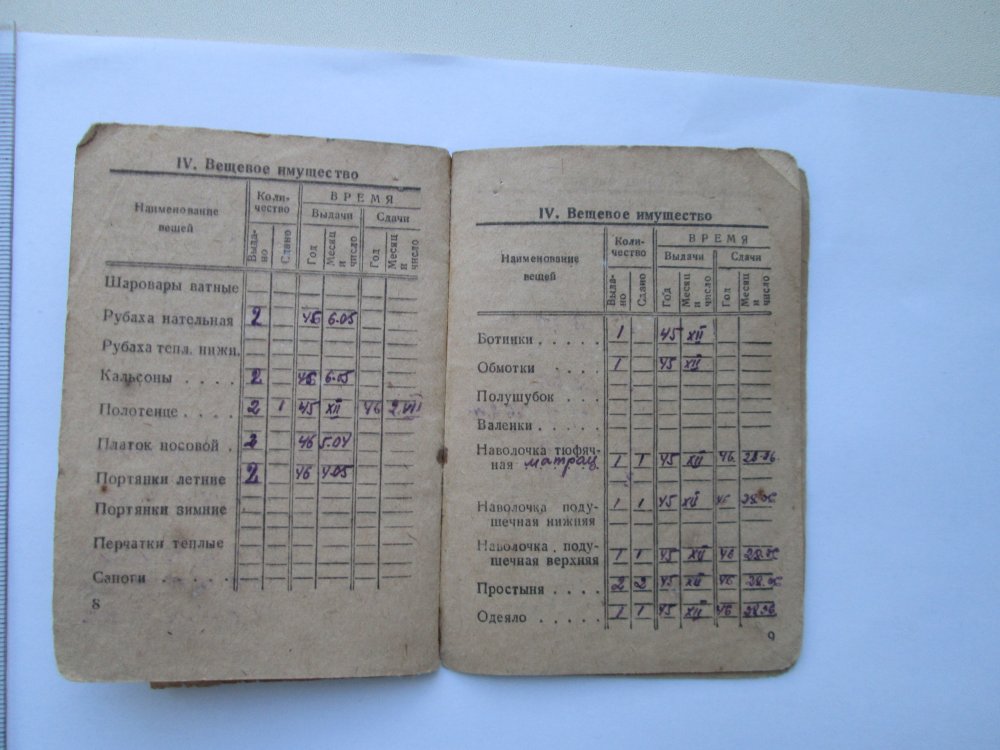 IV. Вещевое имущество
Наименование вещей
Коли-
чество
ВРЕМЯ
Выдачи
Сдачи
Выда-
но
Сдано
Год
Месяц
и
число
Год
Месяц
и
число
Шаровары ватные
Рубаха нательная 2 46 6.05
Рубаха тепл. нижн.
Кальсоны . . . . 2 46 6.05
Полотенце . . . . 2 1 45 XII 46 2.VIII
Платок носовой . 2 46 5.04
Портянки летние 2 46 4.05
Портянки зимние
Перчатки теплые
Сапоги . . . . .
8
IV. Вещевое имущество
Наименование
вещей
Коли-
чество
ВРЕМЯ
Выдачи
Сдачи
Выда-
но
Сдано
Год
Месяц
и
число
Год
Месяц
и
число
Ботинки . . . . . 1 45 XII
Обмотки . . . . 1 45 XII
Полушубок . . .
Валенки . . . . .
Наволочка тюфяч-
ная матрац 1 1 45 XII 46 28.06
Наволочка поду- 1 1 45 XII 46 28.06
шечная нижняя
Наволочка поду-
шечная верхняя 1 1 45 XII 46 28.06
Простыня . . . . 2 2 45 XII 46 28.06
Одеяло . . . . . 1 1 45 XII 46 28.06
9